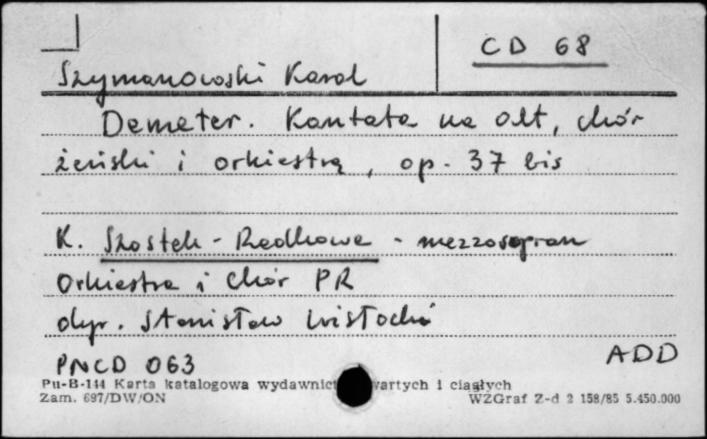 CD 68
Szymanowski Karol
Demeter. Kantata na alt, chór
żeński i orkiestrę, op. 37 bis
K. Szostek-Radkowa - mezzosopran
Orkiestra i Chór PR
dyr. Stanisław Wisłocki
PNCD 063 ADD
Pu-B-144 Karta katalogowa wydawnict wartych i ciągłych
Zam. 697/DW/ON WZGraf Z-d 2 158/85 5.450.000